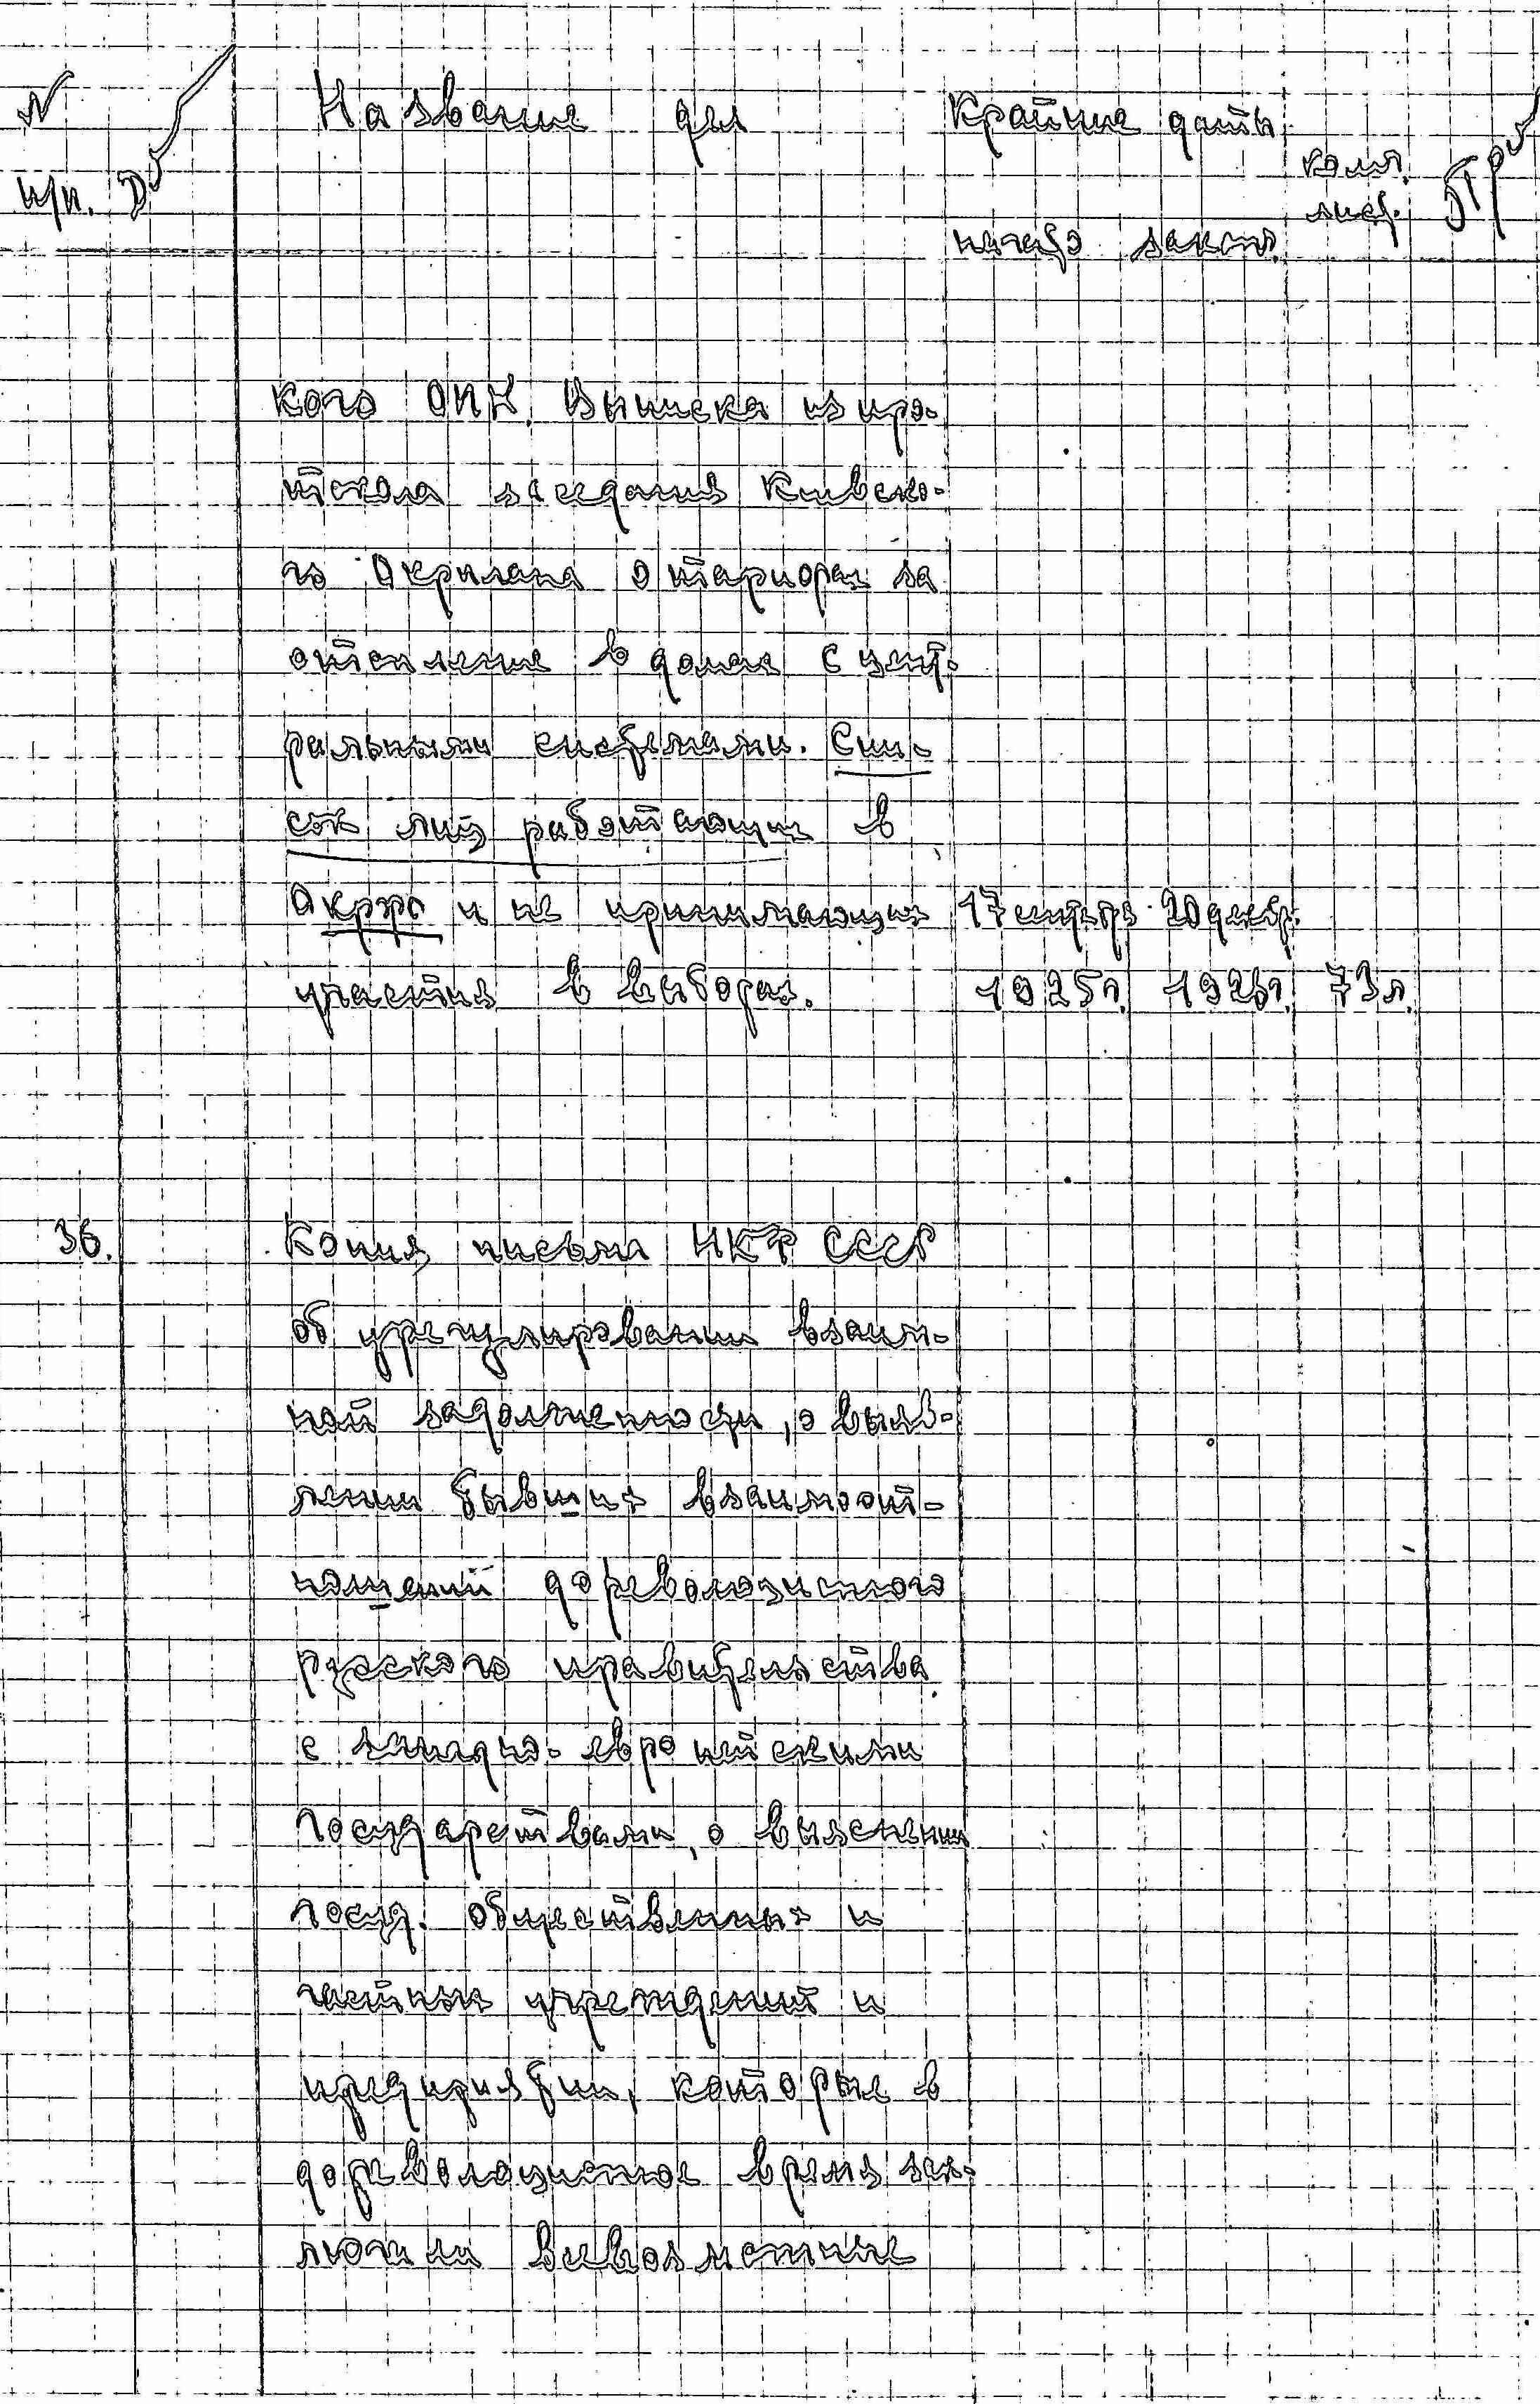 N Название дел Крайние даты
п/п. колич.
лист.
начало законч.
кого ОИК. Выписка из про-
токола заседания Киевско-
го Окрплана о тарифах за
отопление в домах с цент-
ральными системами. Спи-
сок лиц работающих в
и не принимающих 17 сентябр 20 декабр.
участия в выборах. 1925г. 1926г. 73 л.
36. Копия письма НКФ СССР
об урегулировании взаим-
ной задолженности, о выяв-
лении бывших взаимоот-
ношений дореволюционного
русского правительства
с западно-европейскими
государствами, о выяснении
госуд. общественных и
частных учреждений и
предприятий, которые в
дореволюционное время зак-
лючили всевозможные